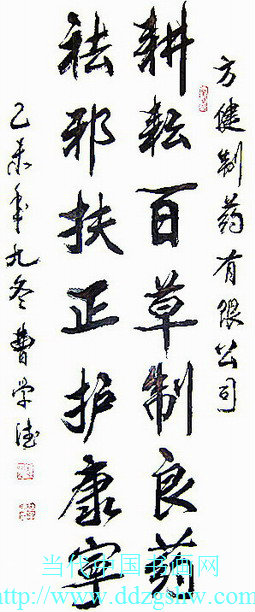 方健制药有限公司
耕耘百草制良药
祛邪扶正护康宁
乙未年九冬曹学德
当代中国书画网
http://www.ddzgshw.com